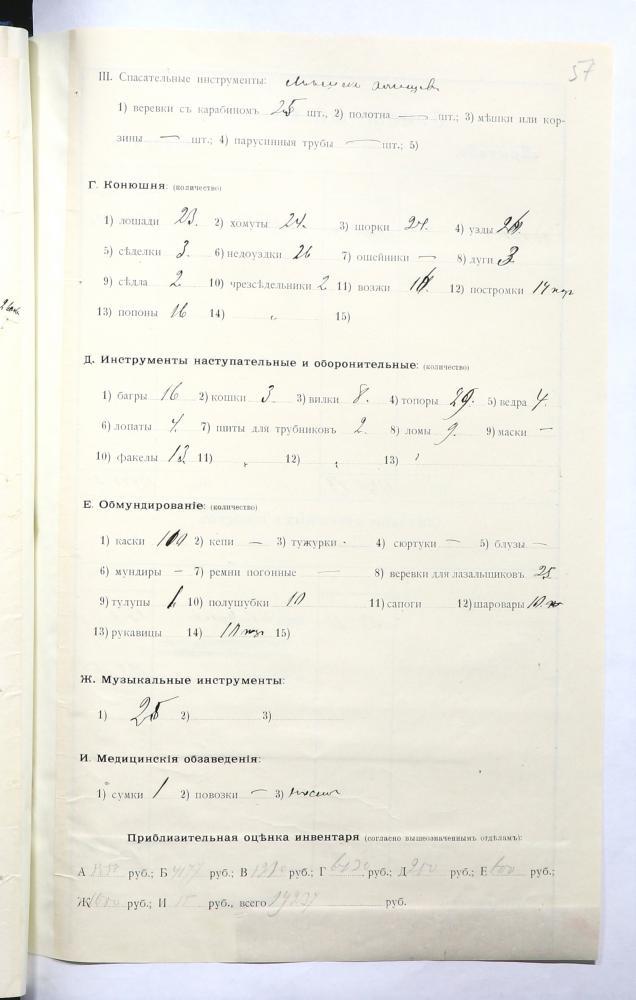 57
III. Спасательные инструменты:
1) веревки съ карабиномъ 25 шт., 2) полотна — шт.; 3) мѣшки или кор-
зины — шт.; 4) парусинныя трубы — шт.; 5)
Г. Конюшня: (количество)
1) лошади 23. 2) хомуты 24. 3) шорки 24. 4) узды
5) сѣделки 3. 6) недоуздки 26 7) ошейники — 8) дуги 3.
9) сѣдла 2 10) чрезсѣдельники 2 11) возжи 12) постромки 14 пар
13) попоны 16 14) 15)
Д. Инструменты наступательные и оборонительные: (количество)
1) багры 16 2) кошки 3. 3) вилки 8. 4) топоры 29. 5) ведра 4.
6) лопаты 4. 7) щиты для трубниковъ 2. 8) ломы 9. 9) маски —
10) факелы 13 11) 12) 13)
Е. Обмундированіе: (количество)
1) каски 100 2) кепи — 3) тужурки 4) сюртуки — 5) блузы —
6) мундиры — 7) ремни погонные — 8) веревки для лазальщиковъ 25
9) тулупы 10) полушубки 10 11) сапоги 12) шаровары 10
13) рукавицы 14) 10 пар 15)
Ж. Музыкальные инструменты:
1) 25 2) 3)
И. Медицинскія обзаведенія:
1) сумки 1 2) повозки — 3)
Приблизительная оцѣнка инвентаря (согласно вышеозначеннымъ отдѣламъ):
А руб.; Б 4177 руб.; В руб.; Г руб.; Д 200 руб.; Е 600 руб.;
Ж руб.; И руб., всего руб.